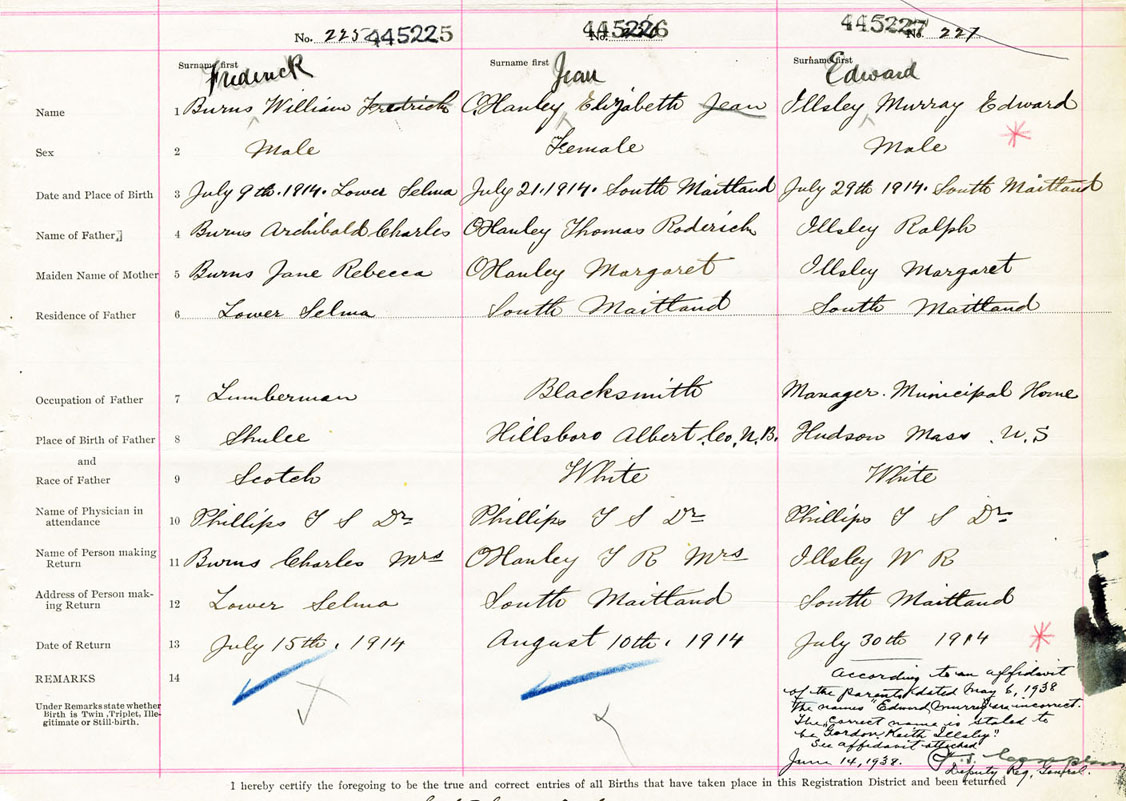 No. 225 445225
445226
No. 226
445227
No. 227
Surname first Surname first Surname first
Frederick Jean Edward
Name 1 Burns William Fredrick O'Hanley Elizabeth Jean Illsley Murray Edward
Sex 2 Male Female Male
Date and Place of Birth 3 July 9th. 1914. Lower Selma July 21. 1914. South Maitland July 29th 1914. South Maitland
Name of Father 4 Burns Archibald Charles O'Hanley Thomas Roderick Illsley Ralph
Maiden Name of Mother 5 Burns Jane Rebecca O'Hanley Margaret Illsley Margaret
Residence of Father 6 Lower Selma South Maitland South Maitland
Occupation of Father 7 Lumberman Blacksmith Manager. Municipal Home
Place of Birth of Father 8 Shulee Hillsboro Albert Co, N.B. Hudson Mass. U.S
and
Race of Father 9 Scotch White White
Name of Physician in
attendance 10 Phillips T S Dr Phillips T S Dr Phillips T S Dr
Name of Person making
Return 11 Burns Charles Mrs O'Hanley T R Mrs Illsley W R
Address of Person mak-
ing Return 12 Lower Selma South Maitland South Maitland
Date of Return 13 July 15th, 1914 August 10th, 1914 July 30th 1914
REMARKS 14
Under Remarks state whether
Birth is Twin, Triplet, Ille-
gitimate or Still-birth.
According to an affidavit
of the parents dated May 6, 1938
the names "Edmund Murray" are incorrect.
The correct name is stated to
be "Gordon Keith Illsley"
See affidavit attached
June 14, 1938.
Deputy Reg. General.
I hereby certify the foregoing to be the true and correct entries of all Births that have taken place in this Registration District and been returned